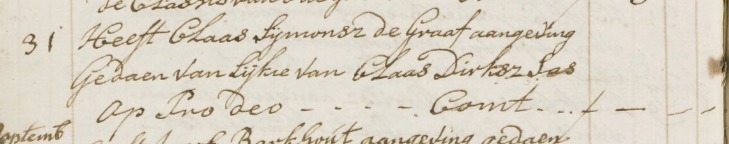 31 Heeft Claas Sijmonsz de Graaf aangeving
Gedaen van Lijkie van Claas Dirksz
op Pro deo - - - - Comt - - ƒ — - -
septemb
Barkhout aangeving gedaen